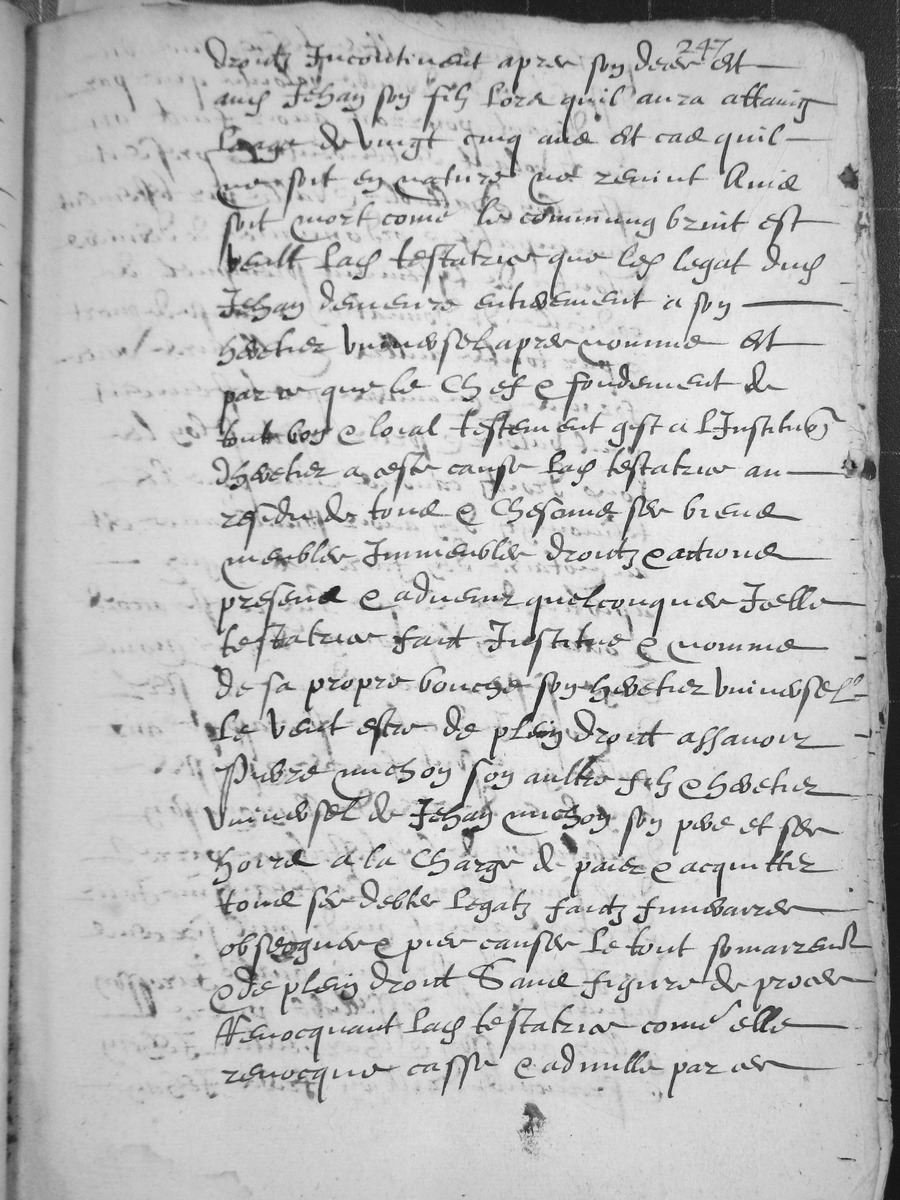 247
droitz Incontinent apres son deces et
aud Jehan son filz lors quil aura attaing
leage de vingt cinq ans et cas quil
ne soit en nature ne revint Ains
soit mort come le commung bruit est
veult lad testatrice que led legat dud
Jehan demeure entierement a son
heretier universel apres nomme et
par ce que le Chef & fondement de
tout bon & loial testement gist a l'Institu͠on
dheretier a ceste cause lad testatrice au
residu de tous & Chescuns ses biens
meubles Immeubles droitz & actions
presens & advenir quelconques Icelle
testatrice faict Institue & nomme
de sa propre bouche son heretier universel
le veut estre de plein droict assavoir
Pierre michon son aultre filz & heretier
universel de Jehan michon son pere et ses
hoirs a la Charge de paier & acquitter
tous ses debtes legatz faictz funeraires
obseques & pies causes le tout somairemt
& de plein droict Sans figure de proces
Revocquant lad testatrice come elle
revocque casse & adnulle par ces